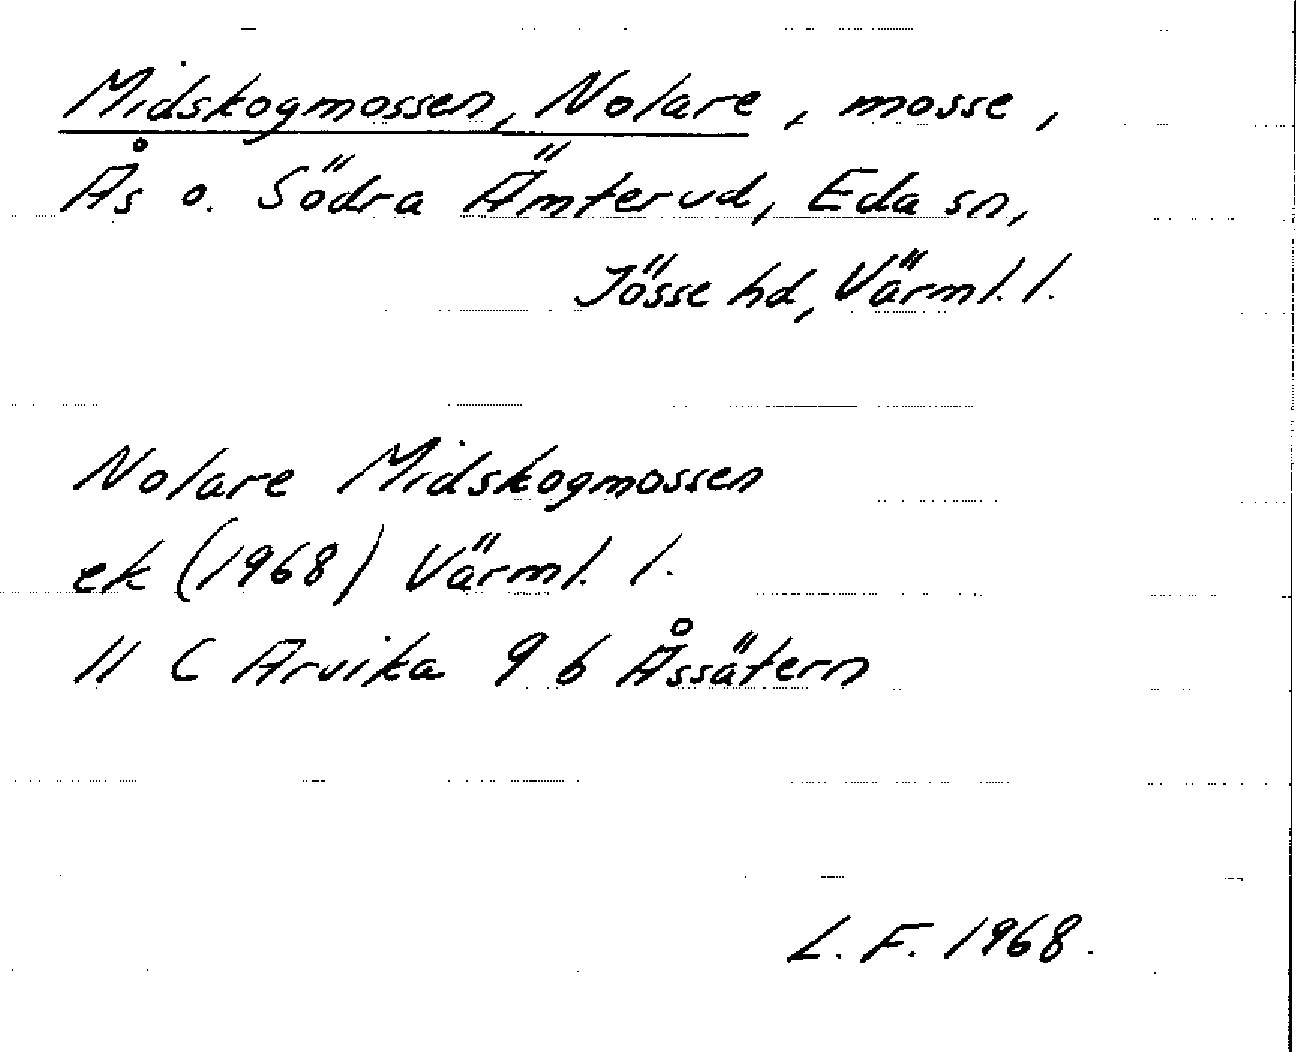 Midskogmossen, Nolare, mosse,
Ås o. Södra Ämterud, Eda sn,
Jösse hd, Värml. l.
Nolare Midskogmossen
ek (1968) Värml. l.
11 C Arvika 9 b Åssätern
L. F. 1968.